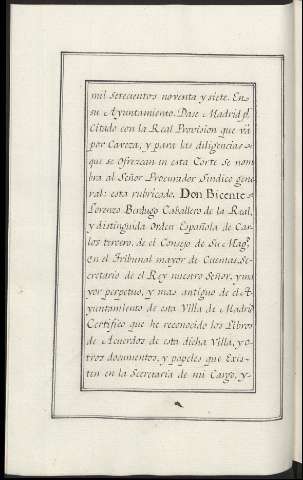 mil Setecientos noventa y siete. En-
su Ayuntamiento. Dase Madrid pr.
Citado con la Real Provision que vá
por Caveza, y para las diligencias-
que se ofrezcan in esta Corte se nom
bra al Señor Procurador Sindico gene
ral: esta rubricada. Don Bicente-
Lorenzo Berdugo Caballero de la Real,
y distinguida orden Española de Car-
los tercero, de el Consejo de Su Magd.
en el Tribunal mayor de Cuentas, Se-
cretario de el Rey nuestro Señor, y ma
yor perpetuo, y mas antiguo de el A-
yuntamiento de esta Villa de Madrid
Certifico que he reconocido los Libros
de Acuerdos de esta dicha Villa, y o-
tros documentos, y papeles que Exis-
ten en la Secretaría de mi Cargo, y-